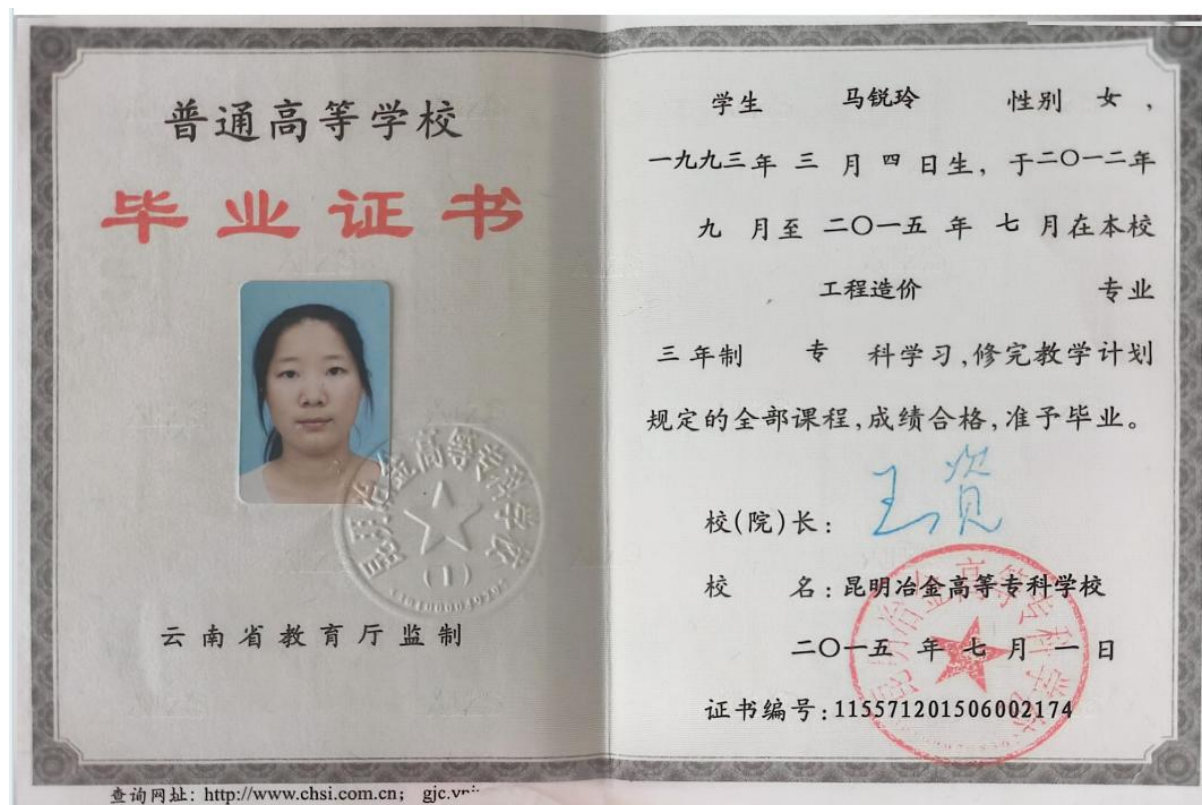 普通高等学校
毕业证书
昆明冶金高等专科学校
(1)
云南省教育厅监制
学生 马锐玲 性别 女，
一九九三年 三 月 四 日生，于二〇一二年
九 月至 二〇一五 年 七 月在本校
工程造价 专业
三 年制 专 科学习，修完教学计划
规定的全部课程，成绩合格，准予毕业。
校(院)长：
校 名：昆明冶金高等专科学校
二〇一五 年 七 月 一 日
证书编号：115571201506002174
昆明冶金高等专科学校
查询网址：http://www.chsi.com.cn；